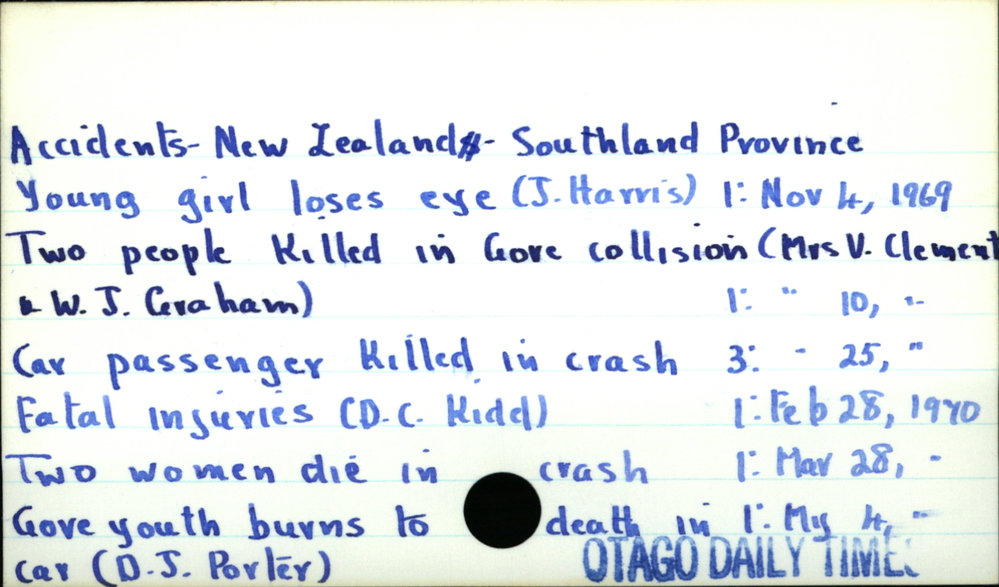 Accidents - New Zealand - Southland Province
Young girl loses eye (J. Harris) 1: Nov 4, 1969
Two people killed in Gore collision (Mrs V. Clement
& W. J. Graham) 1: " 10, "
Car passenger killed in crash 3: " 25, "
Fatal injuries (D.C. Kidd) 1: Feb 28, 1970
Two women die in crash 1: Mar 28, "
Gore youth burns to death in 1: My 4, "
car (D.J. Porter)
OTAGO DAILY TIMES